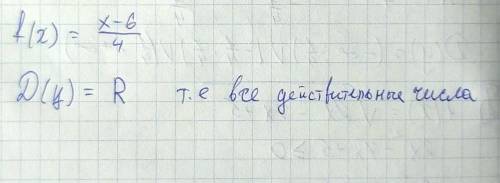 f(x) = x-6/4
D(y) = R т.е все действительные числа